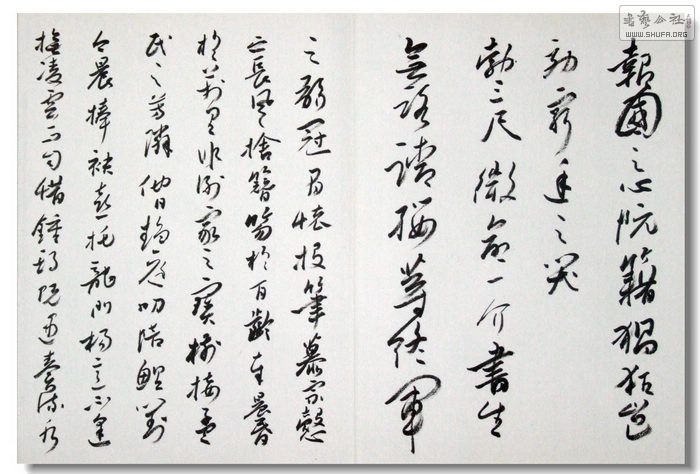 報國之心阮籍猖狂豈
効窮途之哭
勃三尺微命一介書生
無路請纓等終軍
之弱冠有懷投筆慕宗愨
之長風捨簪笏於百齡奉晨昏
於萬里非謝家之寶樹接孟
氏之芳隣他日趨庭叨陪鯉對
今晨捧袂喜托龍門楊意不逢
撫凌雲而自惜鍾期既遇奏流水
書藝公社
WWW.SHUFA.ORG